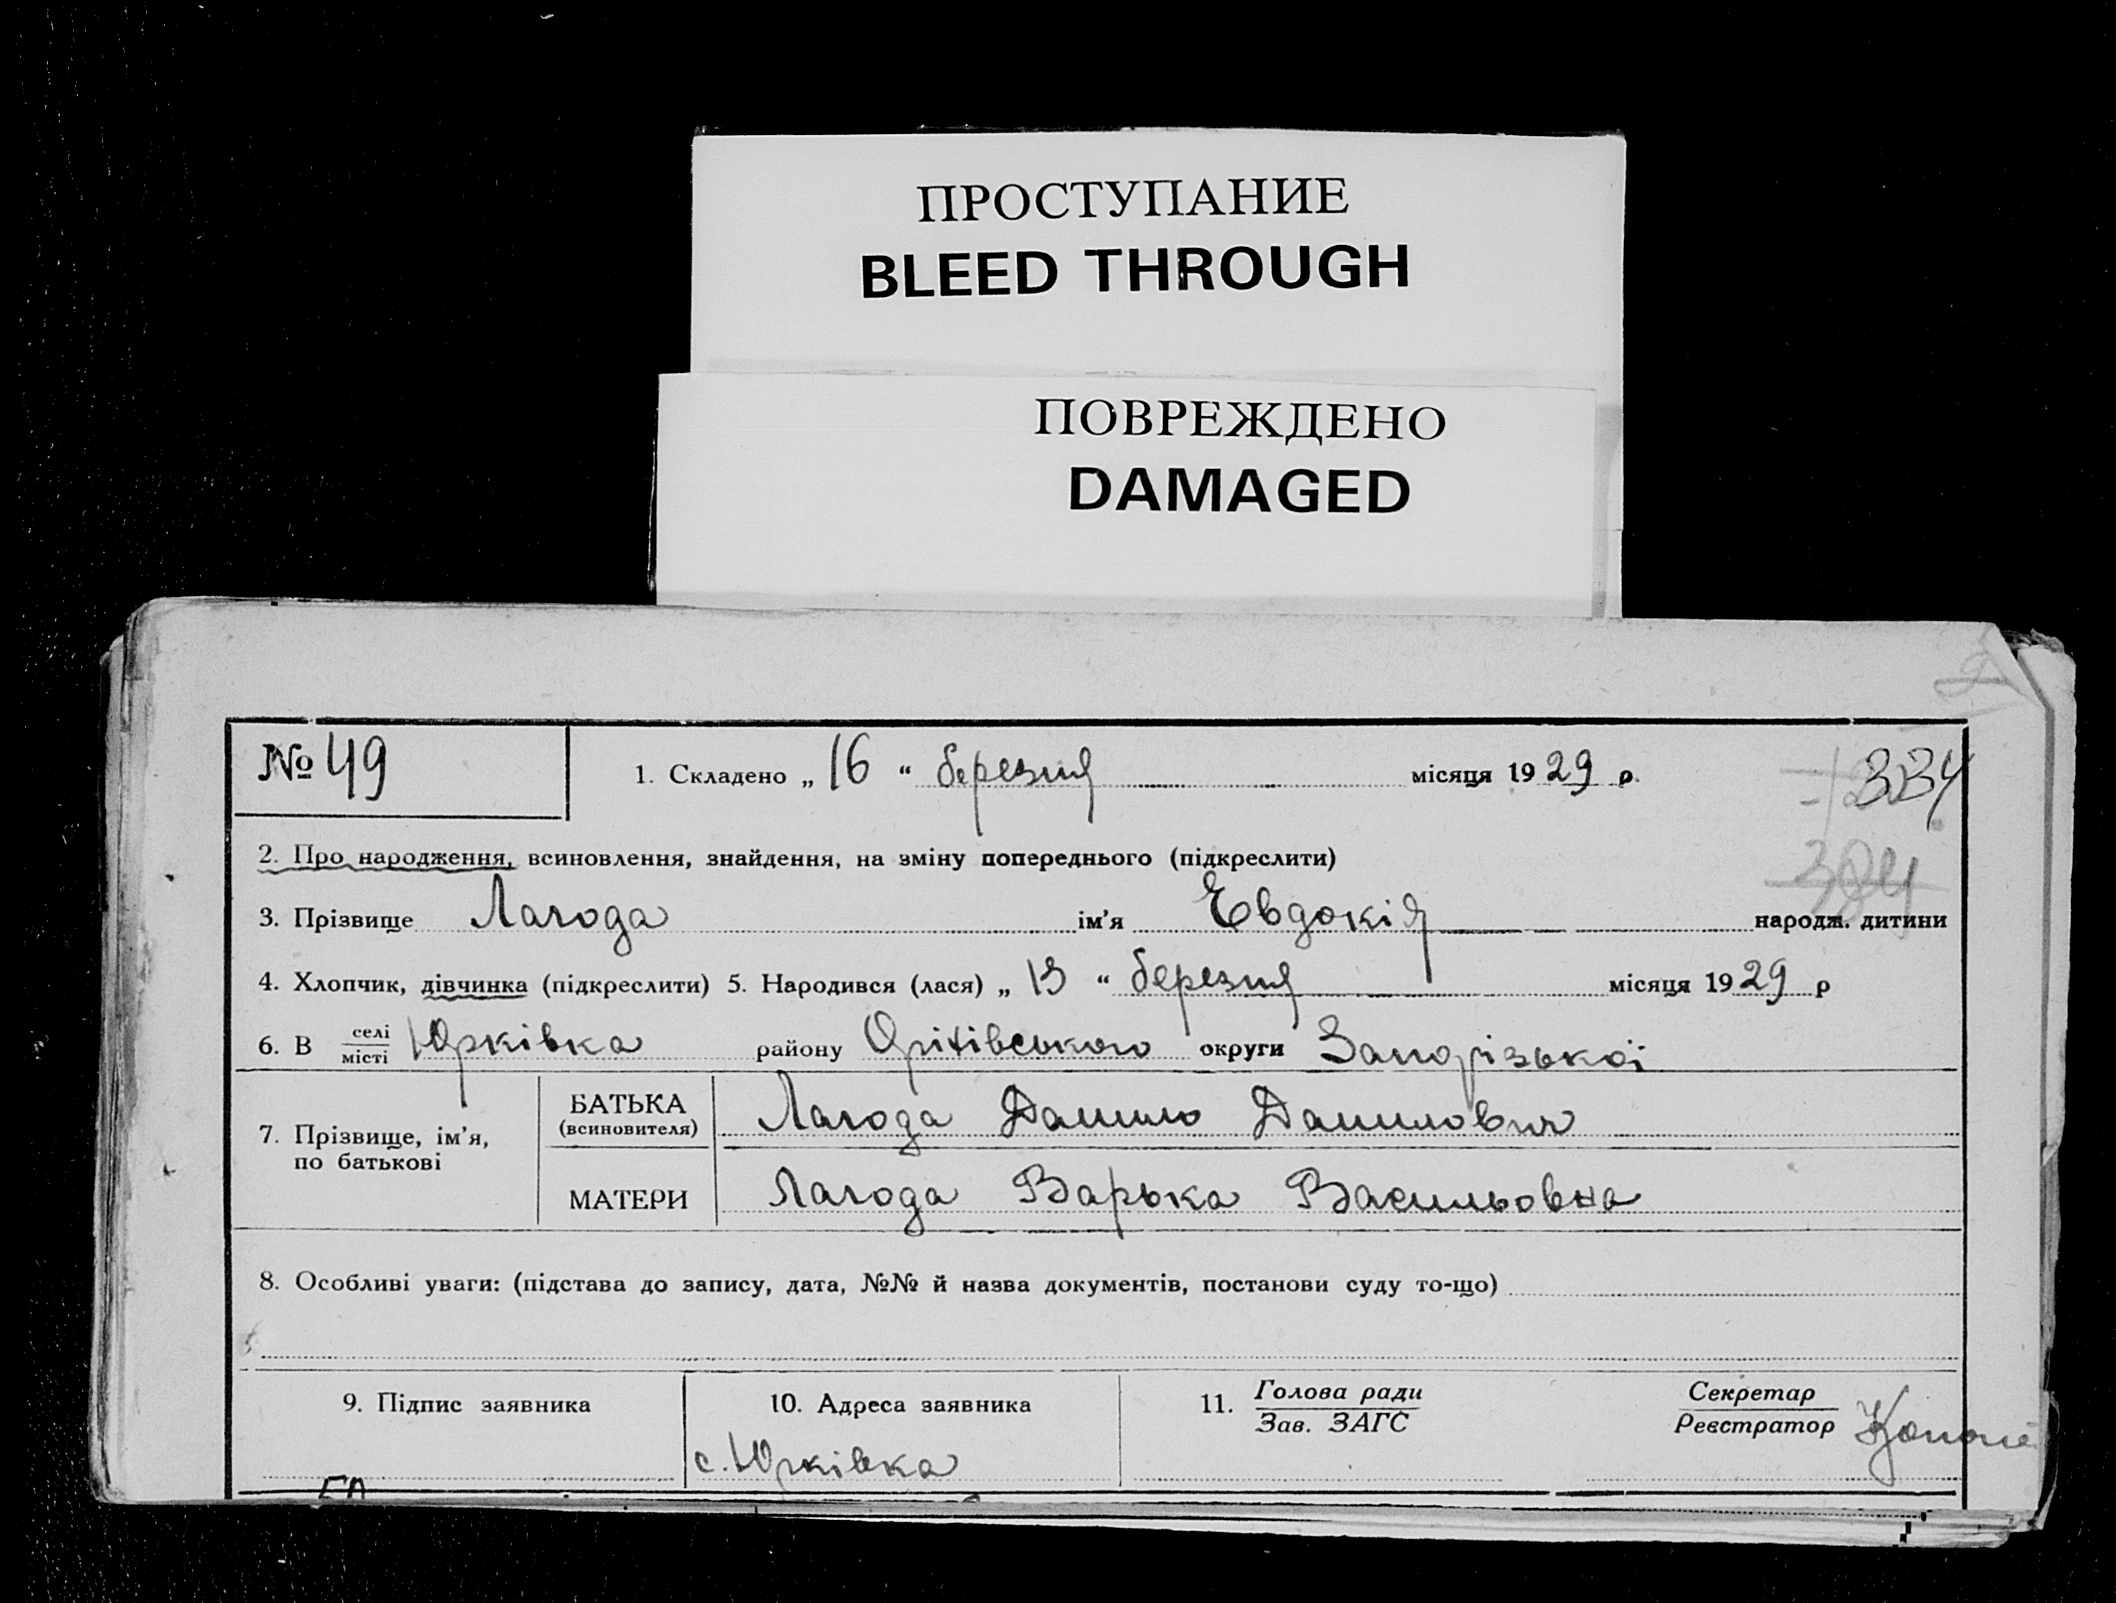 ПРОСТУПАНИЕ
BLEED THROUGH
ПОВРЕЖДЕНО
DAMAGED
№ 49
1. Складено „ 16 “ березня місяця 1929 р.
334
2. Про народження, всиновлення, знайдення, на зміну попереднього (підкреслити)
3. Прізвище Лагода ім'я Евдокія народж. дитини
4. Хлопчик, дівчинка (підкреслити) 5. Народився (лася) „ 13 “ березня місяця 1929 р
6. В селі
місті Юрківка району Оріхівського округи Запорізької
7. Прізвище, ім'я,
по батькові
БАТЬКА
(всиновителя)
Лагода Данило Данилович
МАТЕРИ
Лагода Варька Васильовна
8. Особливі уваги: (підстава до запису, дата, №№ й назва документів, постанови суду то-що)
9. Підпис заявника
10. Адреса заявника
с. Юрківка
11. Голова ради
Зав. ЗАГС
Секретар
Реєстратор